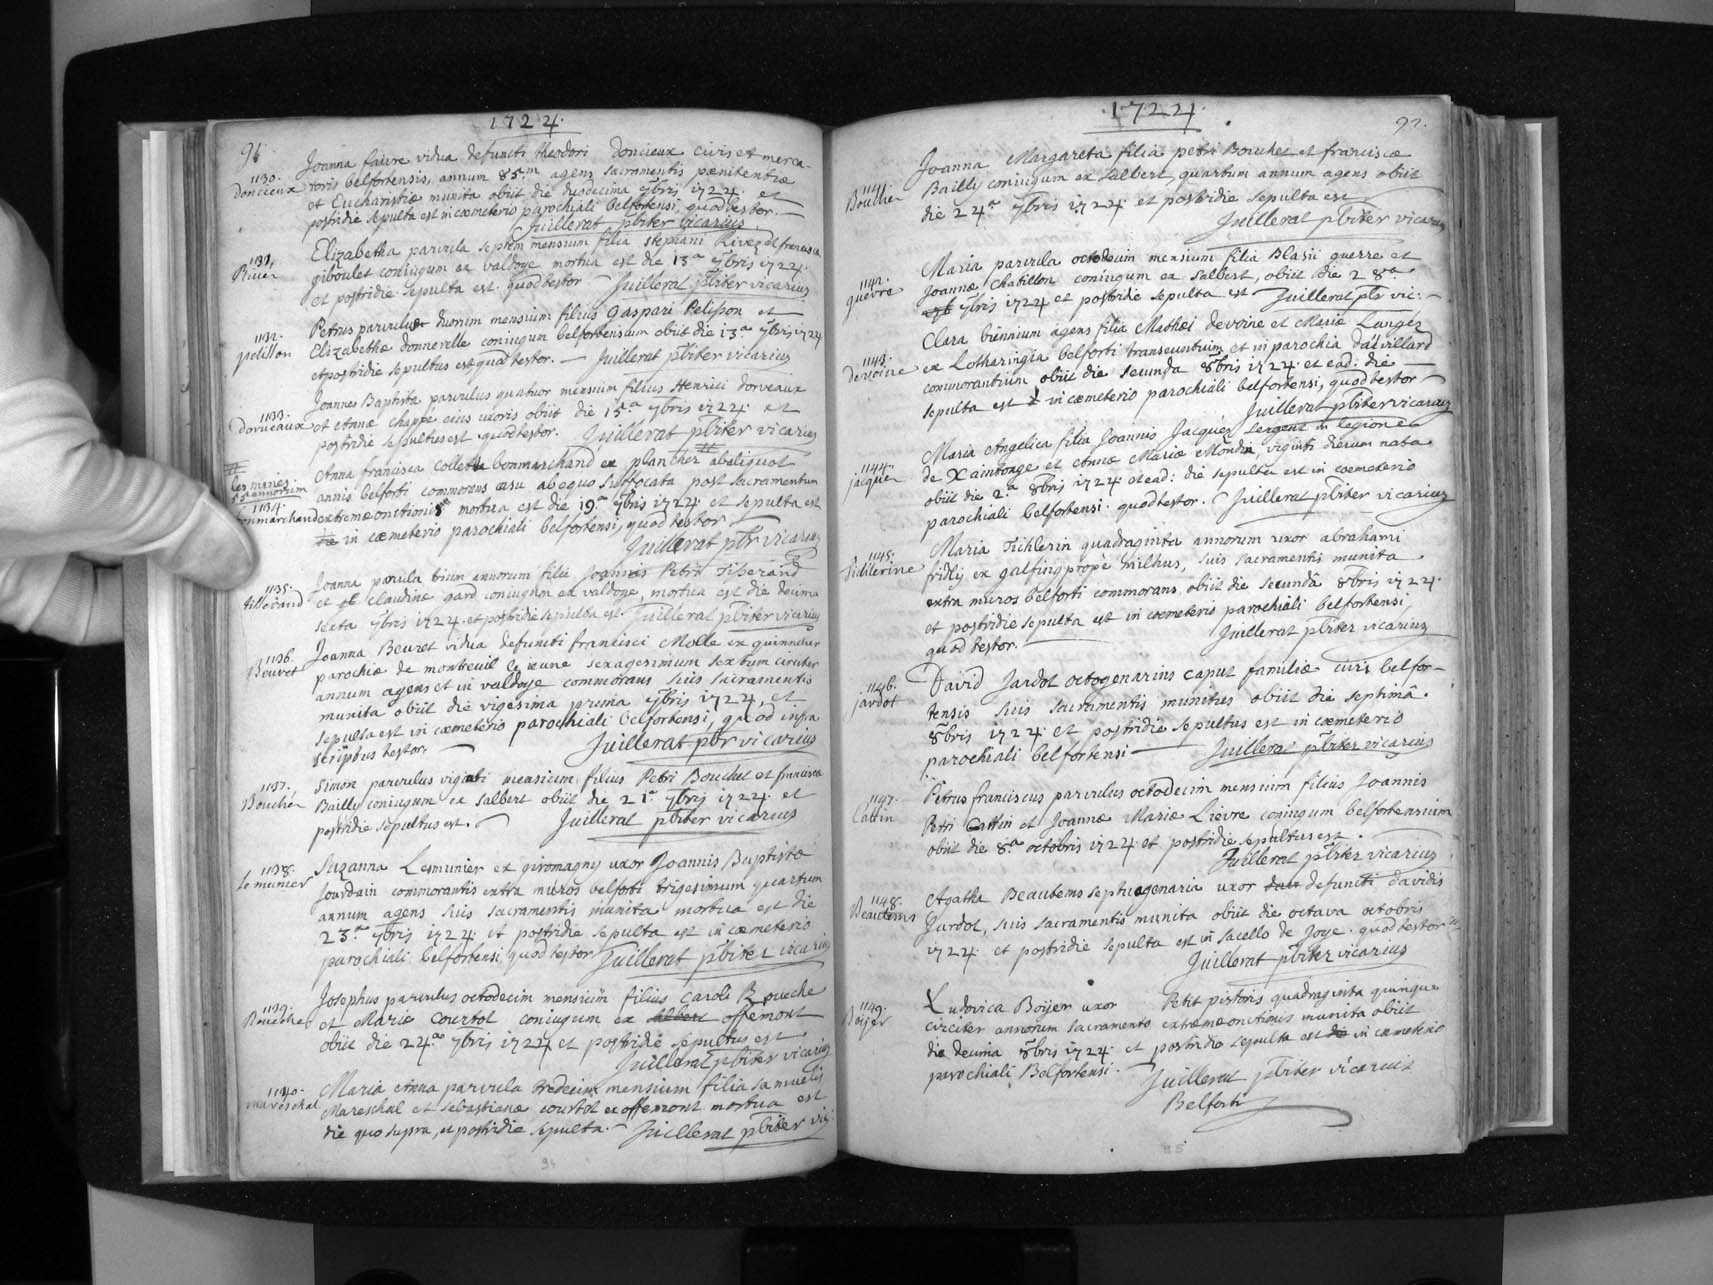 1724.
91.
Joanna faivre vidua defuncti theodori doncieux civis et merca-
1130.
doncieux
toris belfortensis, annum 85am agens sacramentis pænitentiæ
et Eucharistiæ munita obiit die duodecima 7bris 1724. et
postridie sepulta est in cæmeterio parochiali belfortensi, quod testor.
Juillerat pbiter vicarius
Elizabetha parvula septem mensium filia stephani Rivez et francisca
1131.
River
giboulet coniugum ex valdoye mortua est die 13a 7bris 1724.
et postridie sepulta est. quod testor Juillerat pbiter vicarius
Petrus parvulus duorum mensium filius gaspari Pelisson et
1132.
pelisson
Elizabethæ donnerelle coniugum belfortensium obiit die 13a 7bris 1724
et postridie sepultus est quod testor. Juillerat pbiter vicarius
Joannes Baptista parvulus quatuor mensium filius Henrici dorveaux
1133.
dorveaux
et Annæ chappé eius uxoris obiit die 15a 7bris 1724. et
postridie sepultus est quod testor. Juillerat pbiter vicarius
Anna francisca collette bonmarchand ex plancher ab aliquot
les manes
55 annorum
1134.
bonmarchand
annis belforti commorans casu ab equo suffocata post sacramentum
extremæ onctionis mortua est die 19a 7bris 1724 et sepulta est
die in cæmeterio parochiali belfortensi, quod testor
Juillerat pbr vicarius
Joanna parvula bium annorum filia Joannis Petri Tisserand
1135.
tisserand
et claudinæ gard coniugum ex valdoye, mortua est die decima
sexta 7bris 1724. et postridie sepulta est. Juillerat pbiter vicarius
Joanna Beuret vidua defuncti francisci Molle ex quinncher
1136.
Beuret
parochiæ de montreuil le jeune sexagesimum sextum circiter
annum agens et in valdoye commorans suis sacramentis
munita obiit die vigesima prima 7bris 1724, et
sepulta est in cæmeterio parochiali belfortensi, quod infra
scriptus testor.
Juillerat pbr vicarius
Simon parvulus viginti mensium filius Petri Bouchet et francisca
1137.
Bouchér
Bailly coniugum ex salbert obiit die 21a 7bris 1724. et
postridie sepultus est. Juillerat pbiter vicarius
Suzanna Lesmunier ex giromagny uxor Joannis Baptistæ
1138.
le munier
Jourdain commorantis extra muros belforti trigesimum quartum
annum agens suis sacramentis munita mortua est die
23a 7bris 1724 et postridie sepulta est in cæmeterio
parochiali belfortensi, quod testor Juillerat pbiter vicarius
Josephus parvulus octodecim mensium filius caroli Boueche
1139.
Boueche
et Mariæ Courtot coniugum ex salbert offemont
obiit die 24a 7bris 1724 et postridie sepultus est
Juillerat pbiter vicarius
Maria Anna parvula tredecim mensium filia samuelis
1140.
mareschal
Mareschal et sebastianæ courtot ex offemont mortua est
die quo supra, et postridie sepulta. Juillerat pbiter vic.
94
1724.
92.
Joanna Margareta filia petri Bouchet et franciscæ
1141.
Boucher
Bailly coniugum ex salbert, quartum annum agens obiit
die 24a 7bris 1724 et postridie sepulta est
Juillerat pbiter vicarius
Maria parvula octodecim mensium filia Blasii guerre et
1142.
guerre
Joannæ Chatillon coniugum ex salbert, obiit die 28a
7bris 1724 et postridie sepulta est Juillerat pbr vic:
Clara biennium agens filia Mathei devoine et Mariæ Langez
1143.
devoine
ex Lotharingia belforti transeuntium et in parochia dauvillard
commorantium obiit die secunda 8bris 1724 et ead. die
sepulta est in cæmeterio parochiali belfortensi, quod testor
Juillerat pbiter vicarius
Maria Angelica filia Joannis Jacques sergent in legione
1144.
jacques
de Xaintonge et Annæ Mariæ Mondra viginti dierum nata
obiit die 2a 8bris 1724 et ead: die sepulta est in cœmeterio
parochiali belfortensi. quod testor. Juillerat pbiter vicarius
Maria Tichlerin quadraginta annorum uxor abrahami
1145.
fridly ex galfing propè milhus, suis sacramentis munita
extra muros belforti commorans obiit die secundâ 8bris 1724.
et postridie sepulta est in cœmeterio parochiali belfortensi
quod testor. Juillerat pbiter vicarius
David Jardot octogenarius caput familiæ civis belfor-
1146.
jardot
tensis suis sacramentis munitus obiit die septimâ
8bris 1724 et postridie sepultus est in cœmeterio
parochiali belfortensi Juillerat pbiter vicarius
Petrus franciscus parvulus octodecim mensium filius Joannis
1147.
Cattin
Petri Cattin et Joannæ Mariæ Lievre coniugum belfortensium
obiit die 8a octobris 1724 et postridie sepultus est.
Juillerat pbiter vicarius
Agatha Beautems septuagenaria uxor defuncti davidis
1148.
Beautems
Jardot, suis sacramentis munita obiit die octava octobris
1724. et postridie sepulta est in sacello de joye. quod testor
Juillerat pbiter vicarius
Ludovica Boijer uxor Petit pistoris quadraginta quinque
1149.
Boijer
circiter annorum sacramento extremæ onctionis munita obiit
die decima 8bris 1724. et postridie sepulta est die in cœmeterio
parochiali Belfortensi. Juillerat pbiter vicarius
Belforti